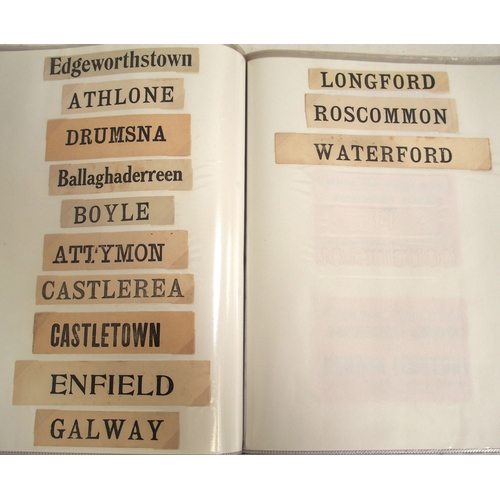 Edgeworthstown
ATHLONE
DRUMSNA
Ballaghaderreen
BOYLE
ATTYMON
CASTLEREA
CASTLETOWN
ENFIELD
GALWAY
LONGFORD
ROSCOMMON
WATERFORD